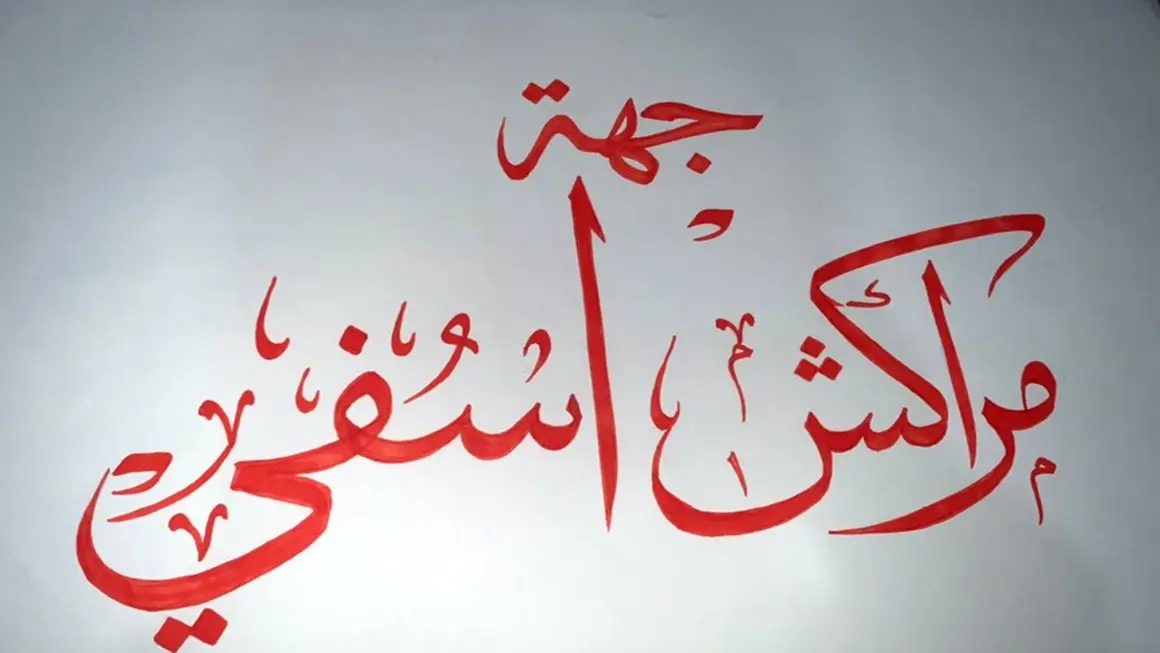 جهة
مراكش اسفي